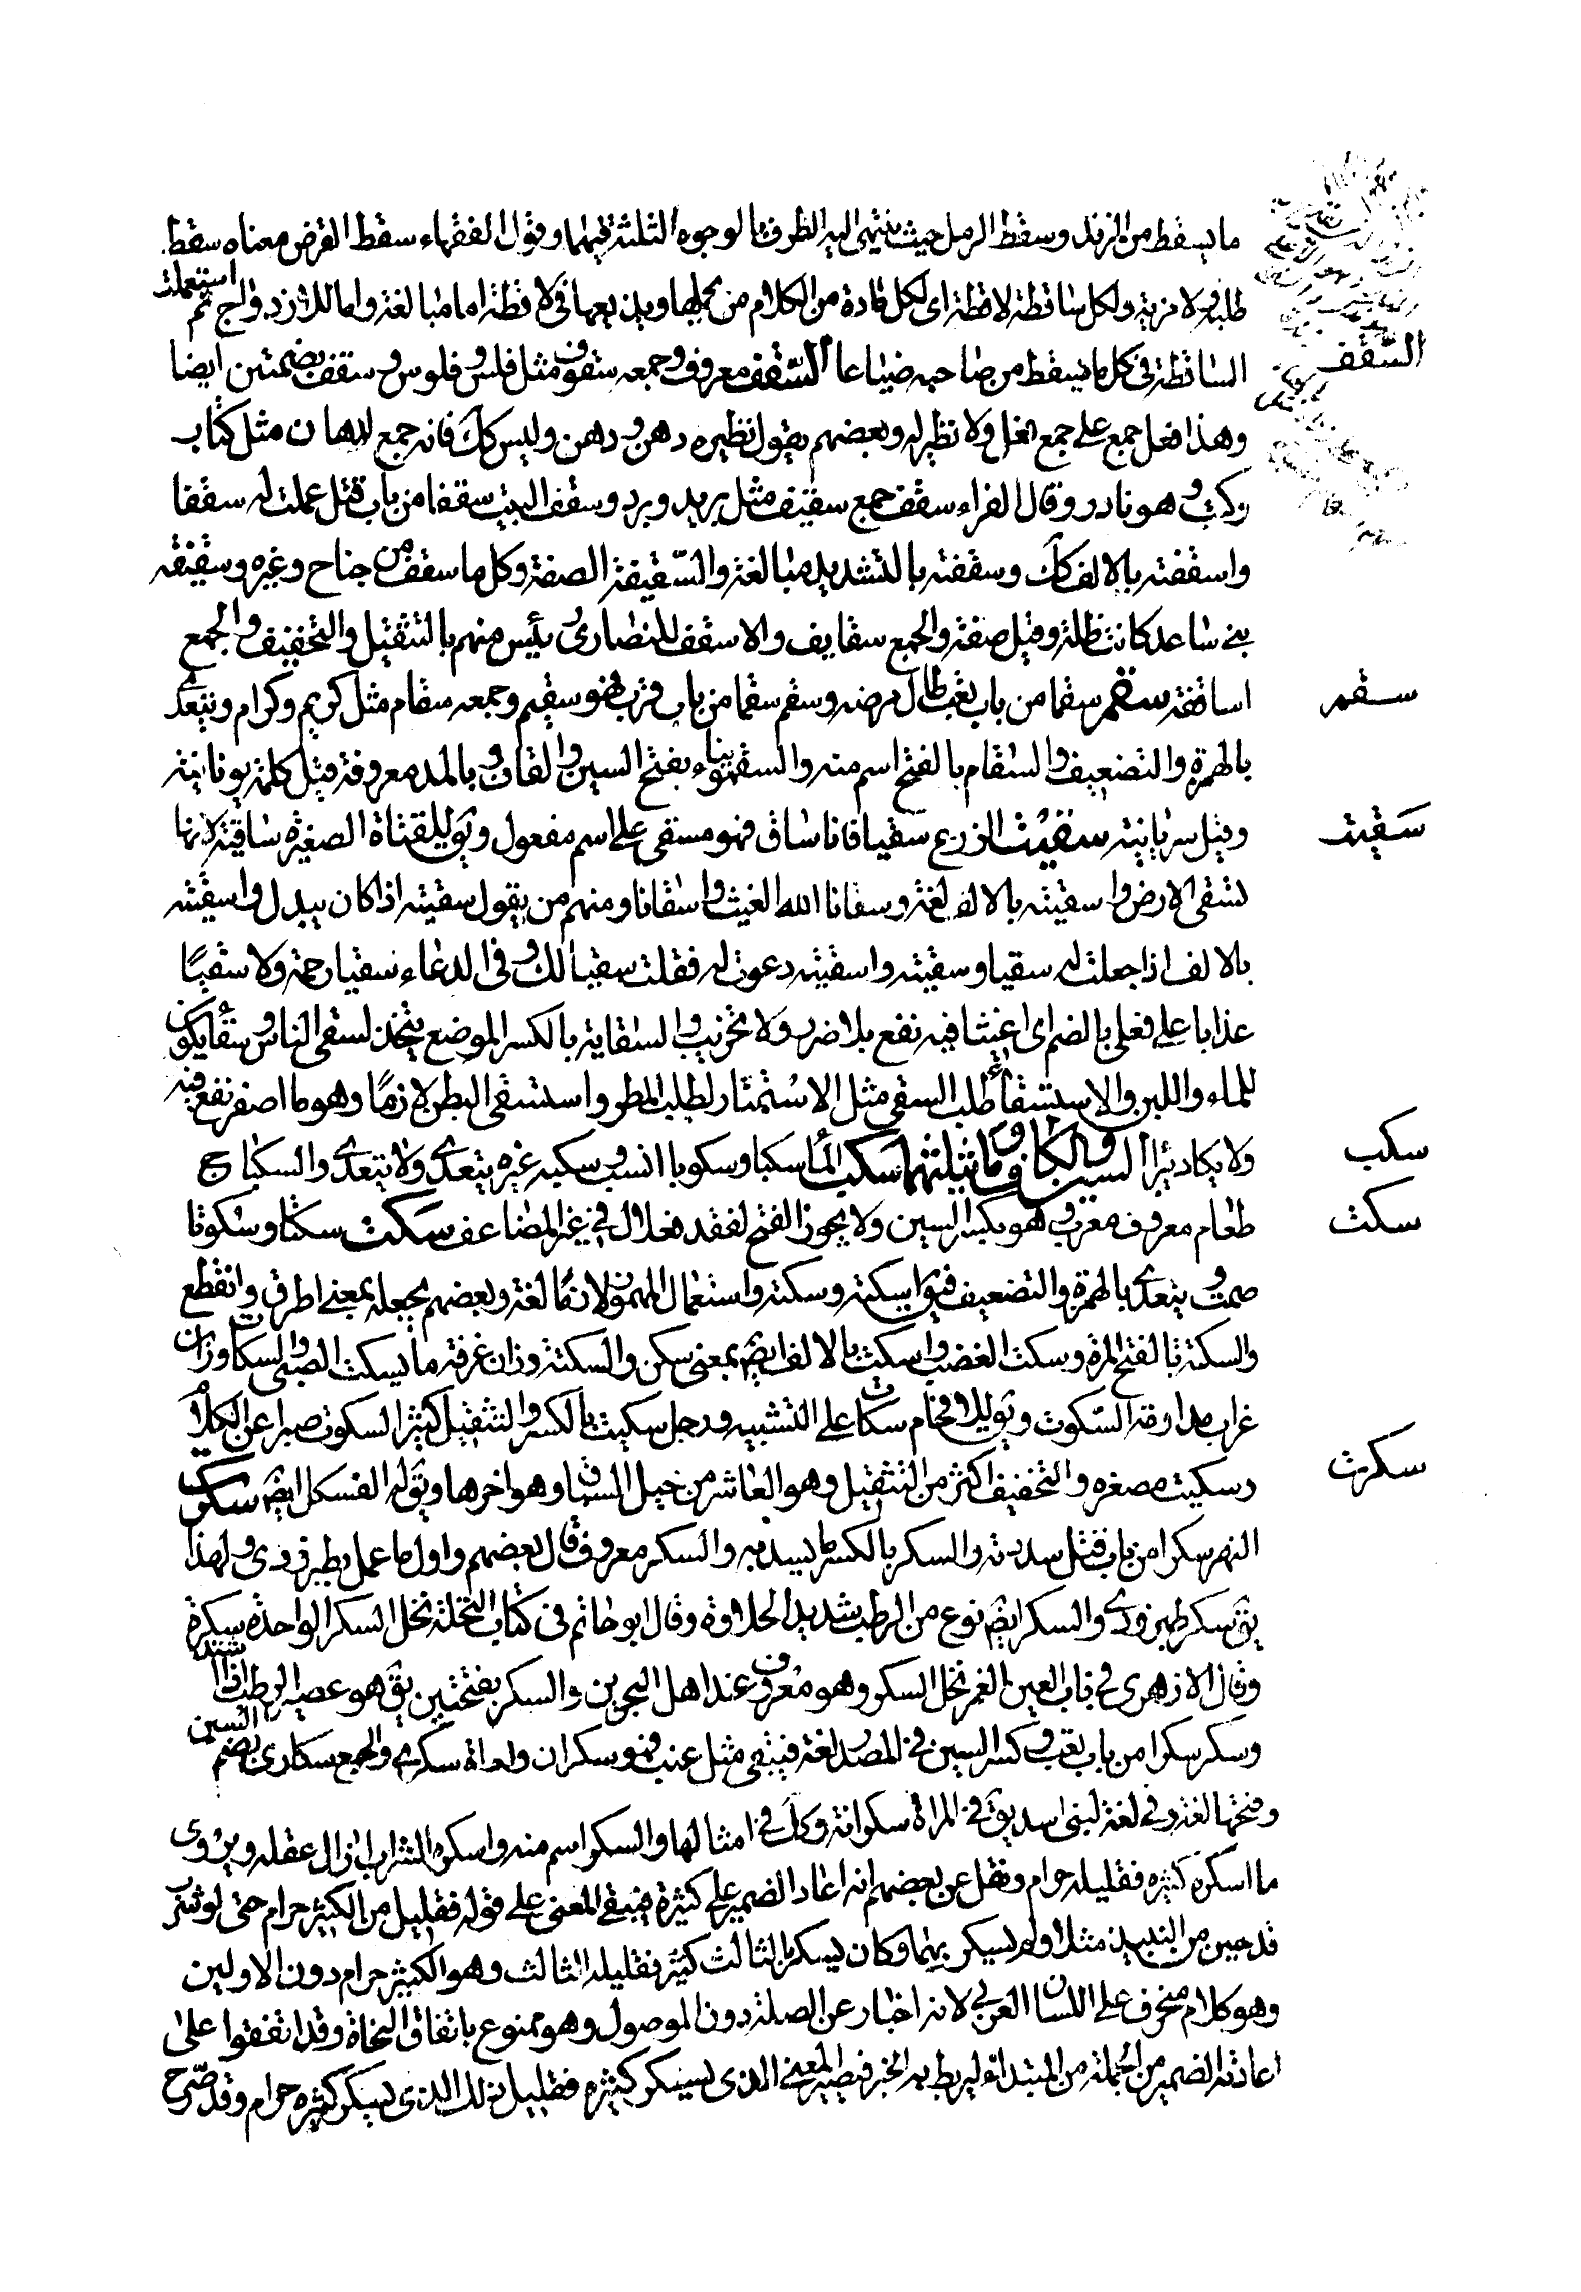 ما يسقط من الزند وسقط الرمل حيث ينتهى اليه الطرف بالوجوه الثلثة فيهما وقول الفقهاء سقط الفرض معناه سقط
طلبه ولا مزية ولكل ساقطة لاقطة اى لكل نادة من الكلام من يحملها ويذيعها فى لاقطة اما مبالغة واما للازدواج ثم استعملت
الساقطة فى كل ما يسقط من صاحبه ضياعا السّقف معروف وجمعه سقوف مثل فلس وفلوس وسقف بضمتين ايضا
السّقف
وهذا فعل جمع على جمع فعل ولا نظير له وبعضهم يقول نظيره رهن ورهن وليس كك فانه جمع لرهان مثل كتاب
وكتب وهو نادر وقال الفراء سقف جمع سقيف مثل بريد وبرد وسقف البيت سقفا من باب قتل عملت له سقفا
واسقفته بالالف كك وسقفته بالتشديد مبالغة والسّقيفة الصفة وكل ما سقف من جناح وغيره وسقيفة
بنى ساعد كانت ظلة وقيل صفة والجمع سقايف والاسقف للنصارى رئيس منهم بالتثقيل والتخفيف والجمع
اساقفة سقم سقما من باب تعب طال مرضه وسقم سقما من باب قرب فهو سقيم وجمعه سقام مثل كريم وكرام ويتعدى
سقم
بالهمزة والتضعيف والسقام بالفتح اسم منه والسقمونياء بفتح السين والقاف وبالمد معروفة قيل كلمة يونانية
وقيل سريانية سقيت الزرع سقيا فانا ساق فهو مسقى على اسم مفعول ويق للقناة الصغيرة ساقية لانها
سَقيت
تسقى الارض واسقيته بالالف لغة وسقانا الله الغيث واسقانا ومنهم من يقول سقيته اذا كان بيدك واسقيته
بالالف اذا جعلت له سقيا وسقيته واسقيته دعوت له فقلت سقيا لك وفى الدعاء سقيا رحمة ولا سقيا
عذابا على فعلى بالضم اى اغثنا فيه نفع بلا ضرر ولا تخريب والسقاية بالكسر الموضع يتخذ لسقى الناس وسقاء يكون
للماء واللبن والاستسقاء طلب السقى مثل الاستمطار لطلب المطر واستسقى البطن لازما وهو ماء اصفر نفع فيه
ولا يكاد يبرأ السين والكاف وما يثلثهما سكب الماء سكبا وسكوبا انسب وسكبه غيره يتعدى ولا يتعدى والسكباج
سكب
طعام معروف معرب وهو بكسر السين ولا يجوز الفتح لفقد فعلال فى غير المضاعف سكت سكتا وسكوتا
سكت
صمت ويتعدى بالهمزة والتضعيف فيق اسكته وسكته واستعمال المهموز لازما لغة وبعضهم يجعله بمعنى اطرق وانقطع
والسكتة بالفتح المرة وسكت الغضب واسكت بالالف ايضم بمعنى سكن والسكتة وزان غرفة ما يسكت الصبى والسكات وزان
غراب مداومة السّكوت ويق للافحام سكات على التشبيه ورجل سكيت بالكسر والتثقيل كثير السكوت صبرا عن الكلام
وسكيت مصغره والتخفيف اكثر من التثقيل وهو العاشر من خيل السباق وهو اخرها ويق له الفسكل ايضم سكرت
سكرت
النهر سكرا من باب قتل سددته والسكر بالكسر ما يسد به والسكر معروف قال بعضهم واول ما عمل بطبرزد ولهذا
يق سكر طبرزدى والسكر ايضم نوع من الرطب شديد الحلاوة وقال ابو حاتم فى كتاب النخلة نخل السكر الواحدة سكرة
وقال الازهرى فى باب العين الغمر نخل السكر وهو معروف عند اهل البحرين والسكر بفتحتين يق هو عصير الرطب اذا اشتد
وسكر سكرا من باب تعب وكسر السين فى المصدر لغة فيبقى مثل عنب فهو سكران وامراة سكرى والجمع سكارى بضم السين
وفتحها لغة وفى لغة لبنى اسد يق فى المراة سكرانة وكك فى امثالها والسكر اسم منه واسكره الشراب ازال عقله ويروى
ما اسكر كثيره فقليله حرام ونقل عن بعضهم انه اعاد الضمير على كثيره فيبقى المعنى على قوله فقليل من الكثير حرام حتى لو شرب
قدحين من النبيذ مثلا ولم يسكر بهما وكان يسكر بالثالث كثير فقليله الثالث وهو الكثير حرام دون الاولين
وهو كلام منحرف على اللسان العربى لانه اخبار عن الصلة دون الموصول وهو ممنوع باتفاق النحاة وقد اتفقوا على
اعادة الضمير من الجملة من المبتدا ليربط به الخبر فيصير المعنى الذى يسكر كثيره فقليل ذلك الذى يسكر كثيره حرام وقد صرّح